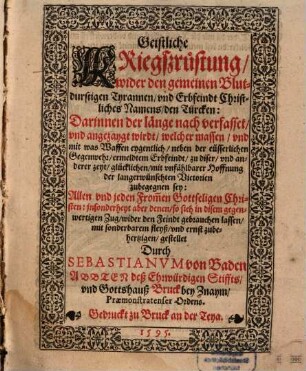 Geistliche
KRiegszrüstung/
wider den gemeinen Blut-
durstigen Tyrannen/ vnd Erbfeindt Christ-
liches Namens/ den Türcken:
Darinnen der länge nach verfasset/
vnd angezaygt wirdt/ welcher massen/ vnd
mit was Waffen eygentlich/ neben der eüsserlichen
Gegenwehr/ ermeldtem Erbfeindt/ zu diser/ vnd an-
derer zeyt/ glücklichen/ mit vnfählbarer Hoffnung
der langerwünschten Victorien
zubegegnen sey:
Allen vnd jeden Fromen Gottseligen Chri-
sten: insonderheyt aber denen/ so sich in disem gegen-
wertigen Zug/ wider den Feindt gebrauchen lassen/
mit sonderbarem fleyß/ vnd ernst zube-
hertzigen/ gestellet
Durch
SEBASTIANVM von Baden
ABBTEN deß Ehrwürdigen Stiffts/
vnd Gottshauß Bruck bey Znaym/
Præmonstratenser Ordens.
Gedruckt zu Bruck an der Teya.
1595.